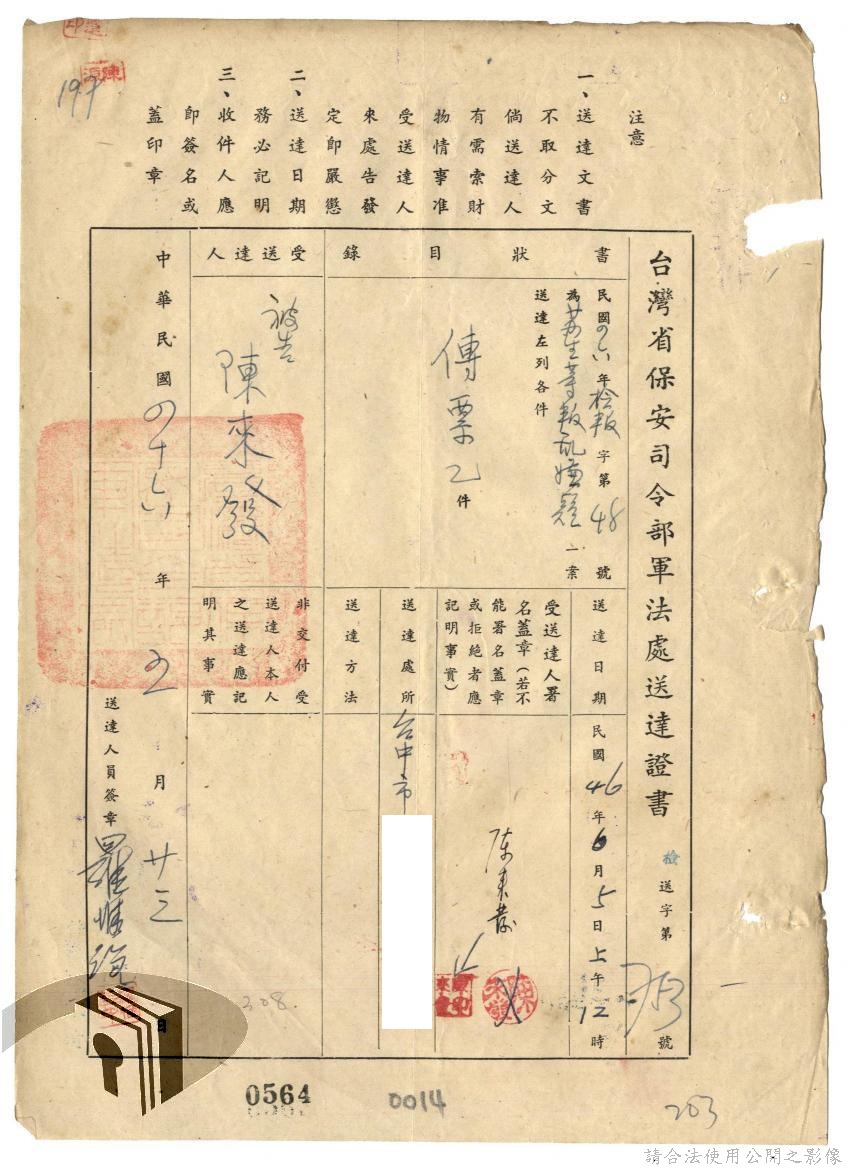 注意
一、送達文書
不取分文
倘送達人
有需索財
物情事准
受送達人
來處告發
定即嚴懲
二、送達日期
務必記明
三、收件人應
即簽名或
蓋印章
197
台灣省保安司令部軍法處送達證書
檢送字第 號
書狀目錄
民國四六年檢叛字第48號
為 等叛亂嫌疑一案
送達左列各件
傳票乙件
受送達人
被告
陳來發
送達日期
民國46年6月5日上午12時
受送達人署
名蓋章(若不
能署名蓋章
或拒絕者應
記明事實)
陳來發
送達處所
台中市
送達方法
非交付受
送達人本人
之送達應記
明其事實
308
中華民國四十六年五月廿三日
送達人員簽章
0564
0014
203
請合法使用公開之影像